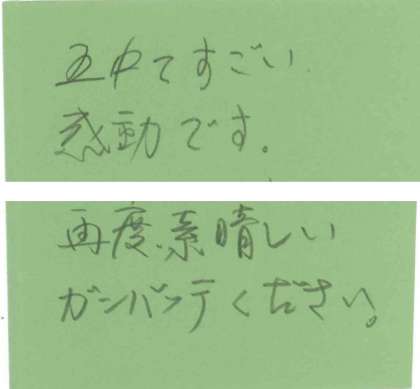 五中てすごい
感動です。
再度、素晴しい
ガンバッテください。